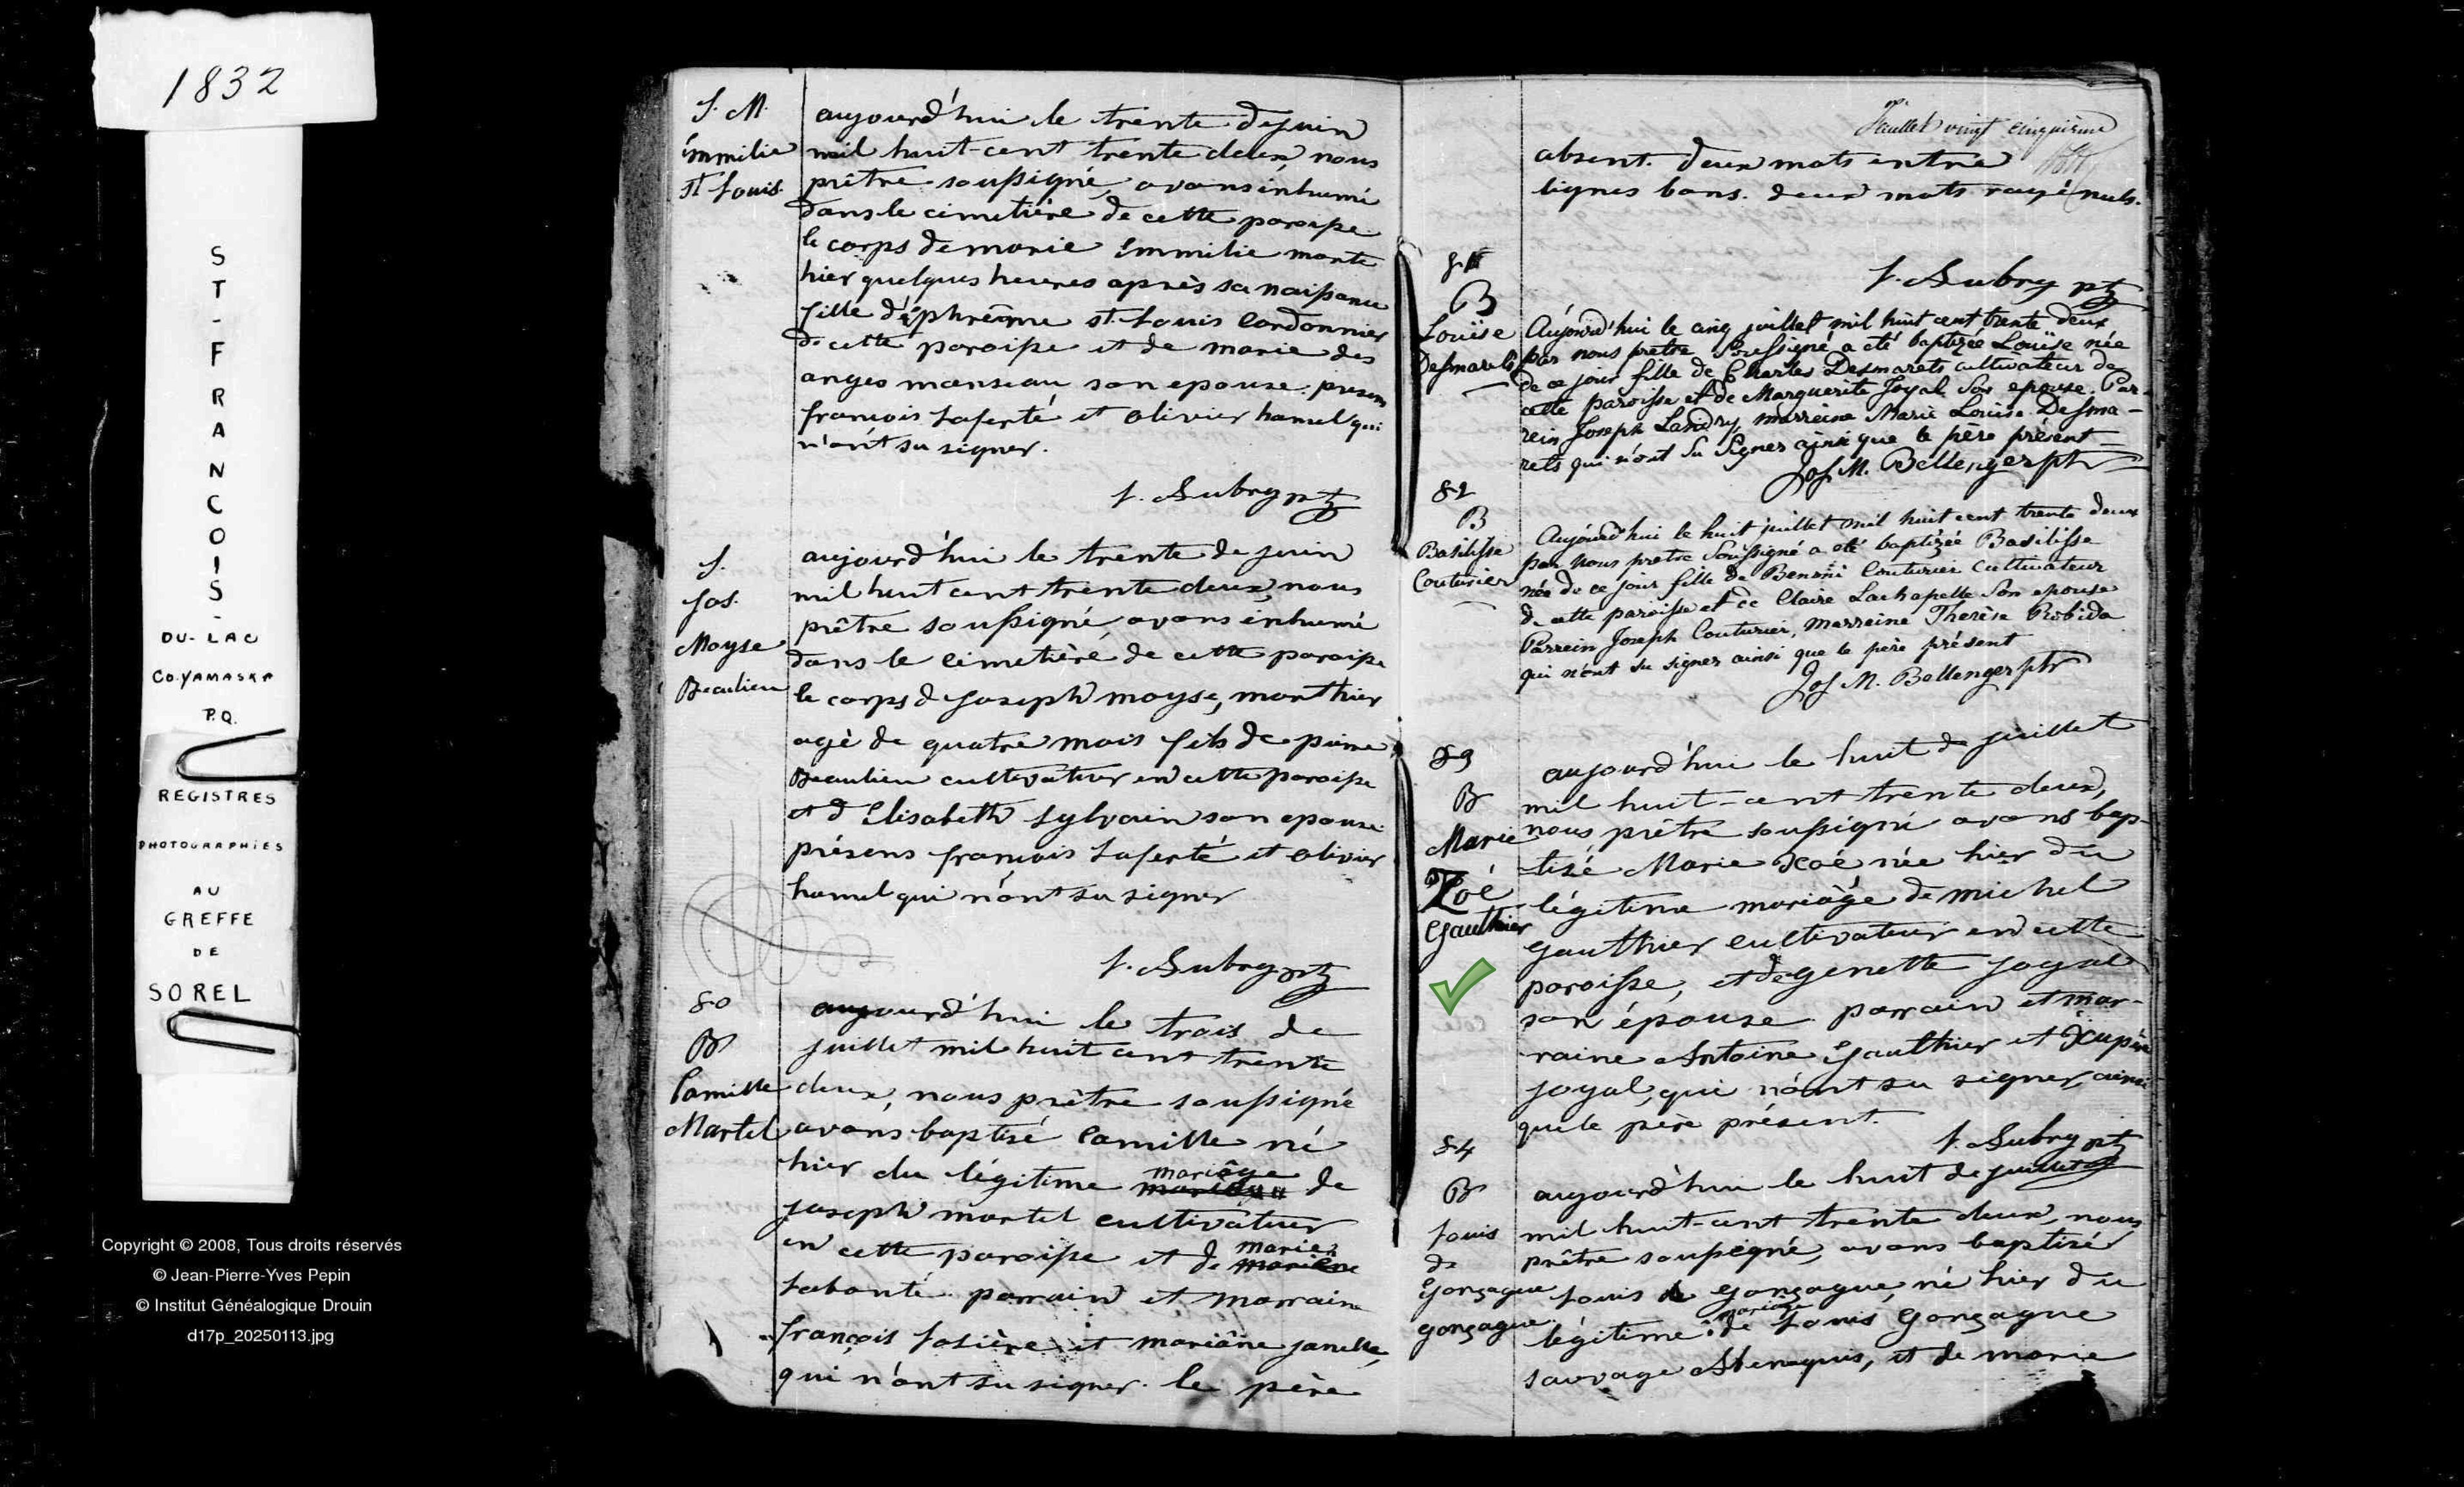 1832
ST-FRANCOIS-
DU-LAC
CO. YAMASKA
P.Q.
REGISTRES
PHOTOGRAPHIES
AU
GREFFE
DE
SOREL
Copyright © 2008, Tous droits réservés
© Jean-Pierre-Yves Pepin
© Institut Généalogique Drouin
d17p_20250113.jpg
S. M.
émmilie
st Louis
aujourd'hui le trente de juin
mil huit-cent trente deux, nous
prêtre soussigné, avons inhumé
dans le cimetière de cette paroisse
le corps de marie émmilie morte
hier quelques heures après sa naissance
fille d'éphrême st. Louis Cordonnier
de cette paroisse et de marie des
anges manseau son epouse. presens
françois Laferté et olivier hamel qui
n'ont su signer.
ptr
S.
Jos.
Moyse
Beaulieu
aujourd'hui le trente de juin
mil huit cent trente deux, nous
prêtre soussigné, avons inhumé
dans le cimetière de cette paroisse
le corps de joseph moyse, mort hier
agé de quatre mois fils de pierre
Beaulieu cultivateur en cette paroisse
et d'Elisabeth Sylvain son epouse
présens françois Laferté et olivier
hamel qui n'ont su signer
ptr
80
B
Camille
Martel
aujourd'hui le trois de
juillet mil huit cent trente
deux, nous prêtre soussigné
avons baptisé Camille né
hier du légitime mariâge de
joseph martel cultivateur
en cette paroisse et de marie
Labonté. parrain et marraine
françois et mariâne janelle,
qui n'ont su signer. le père
feuillet vingt cinquième
absent. Deux mots entre
lignes bons. deux mots rayé nuls.
ptr
81
B
Louise
Desmarets
Aujourd'hui le cinq juillet mil huit cent trente deux
par nous prêtre Soussigné a été baptizée Louïse née
de ce jour fille de Charles Desmarets cultivateur de
cette paroisse et de Marguerite Joyal Son epouse. Par-
rein Joseph Landry, marreine Marie Louise Desma-
rets qui n'ont su Signer ainsi que le père présent
Jos M. Bellenger ptr
82
B
Basilisse
Couturier
Aujourd'hui le huit juillet mil huit cent trente deux
par nous pretre Soussigné a été baptizée Basilisse
née de ce jour fille de Benoni Couturier Cultivateur
de cette paroisse et de Claire Lachapelle Son epouse
Parrein Joseph Couturier, marreine Therèse Robida
qui n'ont su signer ainsi que le père présent
Jos M. Bellenger ptr
83
B
Marie
Zoé
Gauthier
aujourd'hui le huit de juillet
mil huit-cent trente deux,
nous prêtre soussigné avons bap-
-tisé Marie Xoé née hier du
légitime mariâge de michel
gauthier cultivateur en cette
paroisse, et de genette joyal
son épouse. parrain et mar-
raine Antoine Gaulthier et
joyal, qui n'ont su signer, ainsi
que le père présent.
ptr
84
B
Louis
de
Gonzague
gonzague.
aujourd'hui le huit de juillet
mil huit-cent trente deux, nous
prêtre soussigné, avons baptisé
Louis de gonzague, né hier du
légitime mariage de Louis Gonzague
sauvage Abenaquis, et de marie